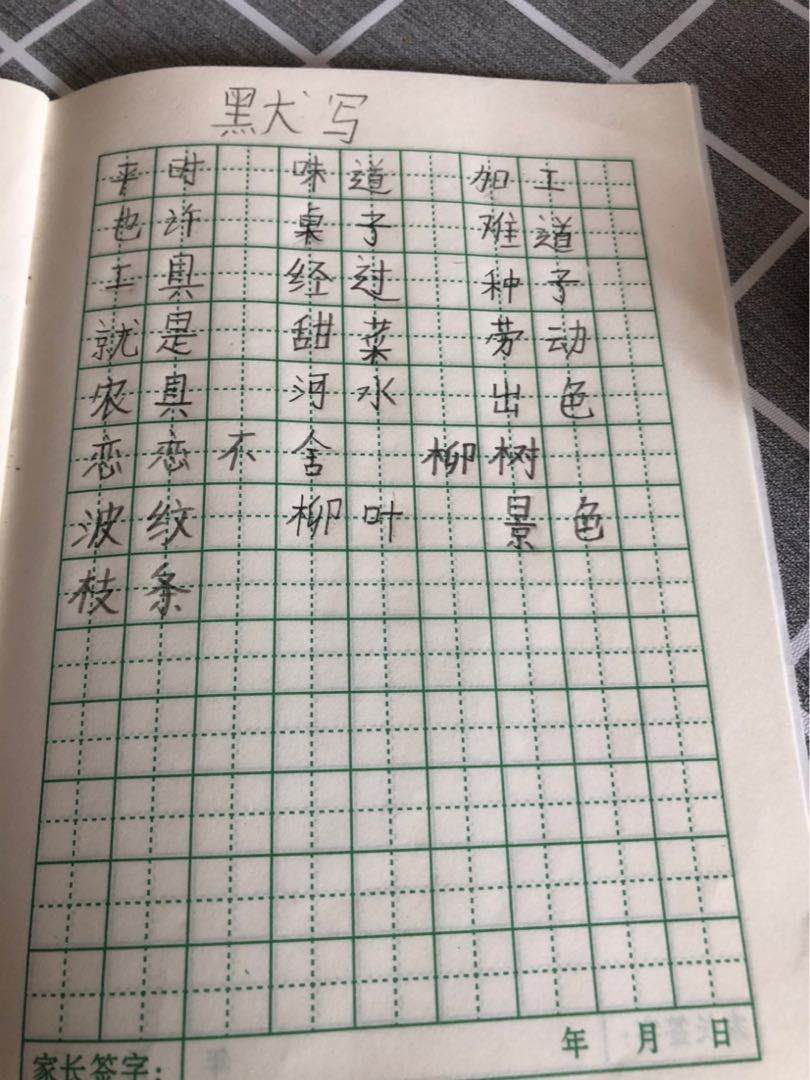 默写
平时 味道 加工
也许 桌子 难道
工具 经过 种子
就是 甜菜 劳动
农具 河水 出色
恋恋不舍 柳树
波纹 柳叶 景色
枝条
年 月 日
家长签字: